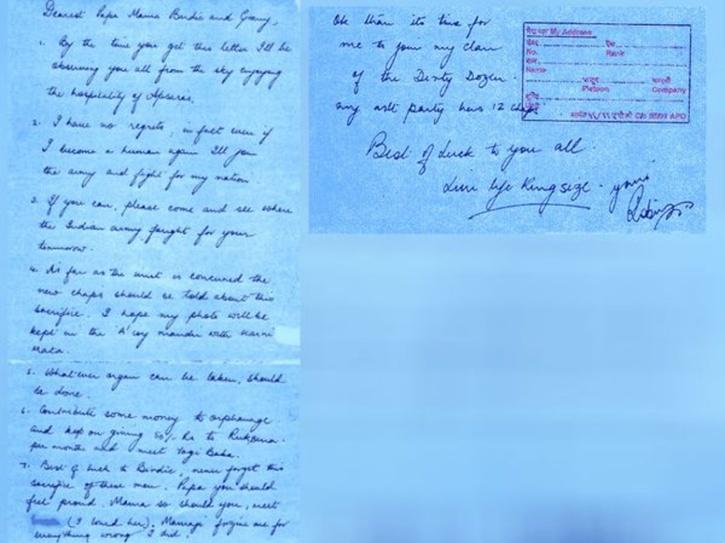 Dearest Papa Mama Birdie and Grany,
1. By the time you get this letter I'll be
observing you all from the sky enjoying
the hospitality of Apsaras.
2. I have no regrets, in fact even if
I become a human again I'll join
the army and fight for my nation.
3. If you can, please come and see where
the Indian army fought for your
tomorrow.
4. As far as the unit is concerned the
new chaps should be told about this
sacrifice. I hope my photo will be
kept in the 'A' coy mandir with Karni
Mata.
5. Whatever organ can be taken, should
be done.
6. Contribute some money to orphanage
and keep on giving 50/- Rs to Ruksana
per month and meet Yogi Baba.
7. Best of Luck to Birdie, never forget this
sacrifice of these men. Papa you should
feel proud. Mama so should you, meet
(I loved her). Mamaji forgive me for
everything wrong I did.
Ok then its time for
me to join my clan
of the Dirty Dozen.
my aslt party has 12 chaps.
मेरा पता My Address
No. Rank
नाम
Name
Platoon Company
C/o 56 APO
Best of Luck to you all.
Live life Kingsize. yours
Robin